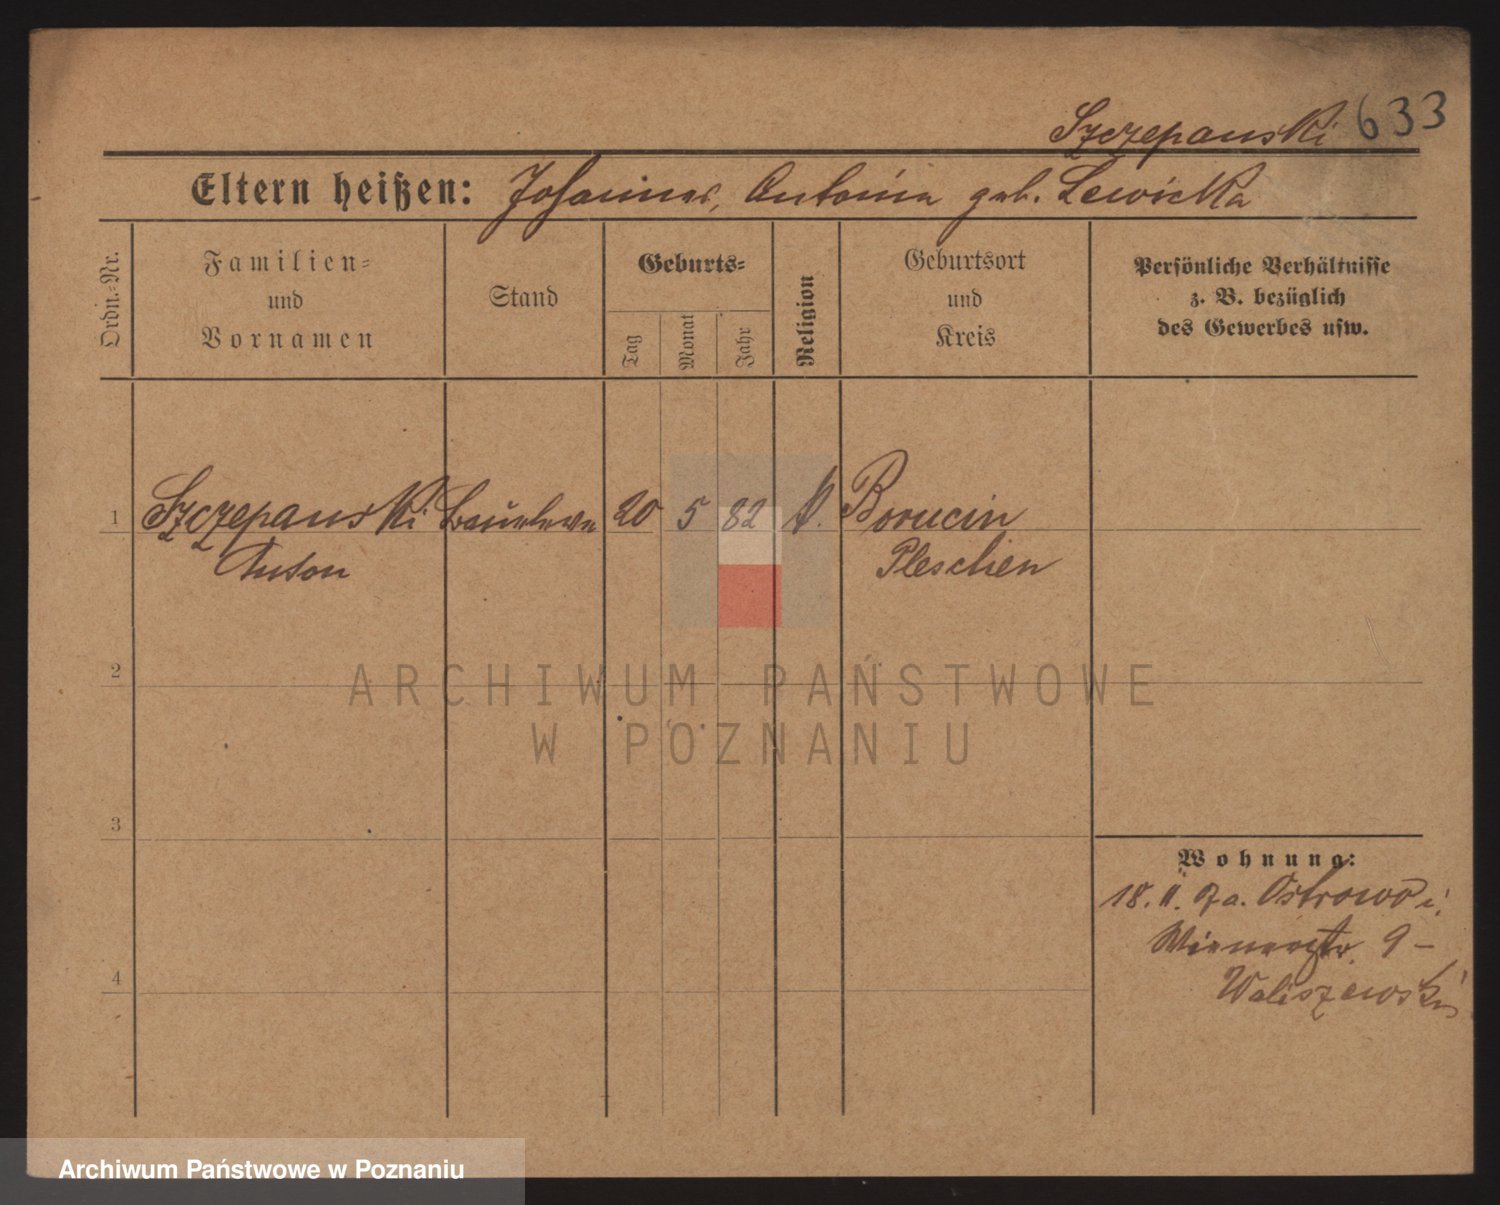 Szczepanski 633
Eltern heißen: Johannes, Antonia geb. Lewicka
Ordn.-Nr.
Familien-
und
Vornamen
Stand
Geburts-
Tag
Monat
Jahr
Religion
Geburtsort
und
Kreis
Persönliche Verhältnisse
z. B. bezüglich
des Gewerbes usw.
1 Szczepanski 20 5 82 k. Borucin
Anton Pleschen
2
3
4
Wohnung:
18. II. Ostrowo i.
Wienerstr. 9 –
Waliszewski
ARCHIWUM PAŃSTWOWE
W POZNANIU
Archiwum Państwowe w Poznaniu